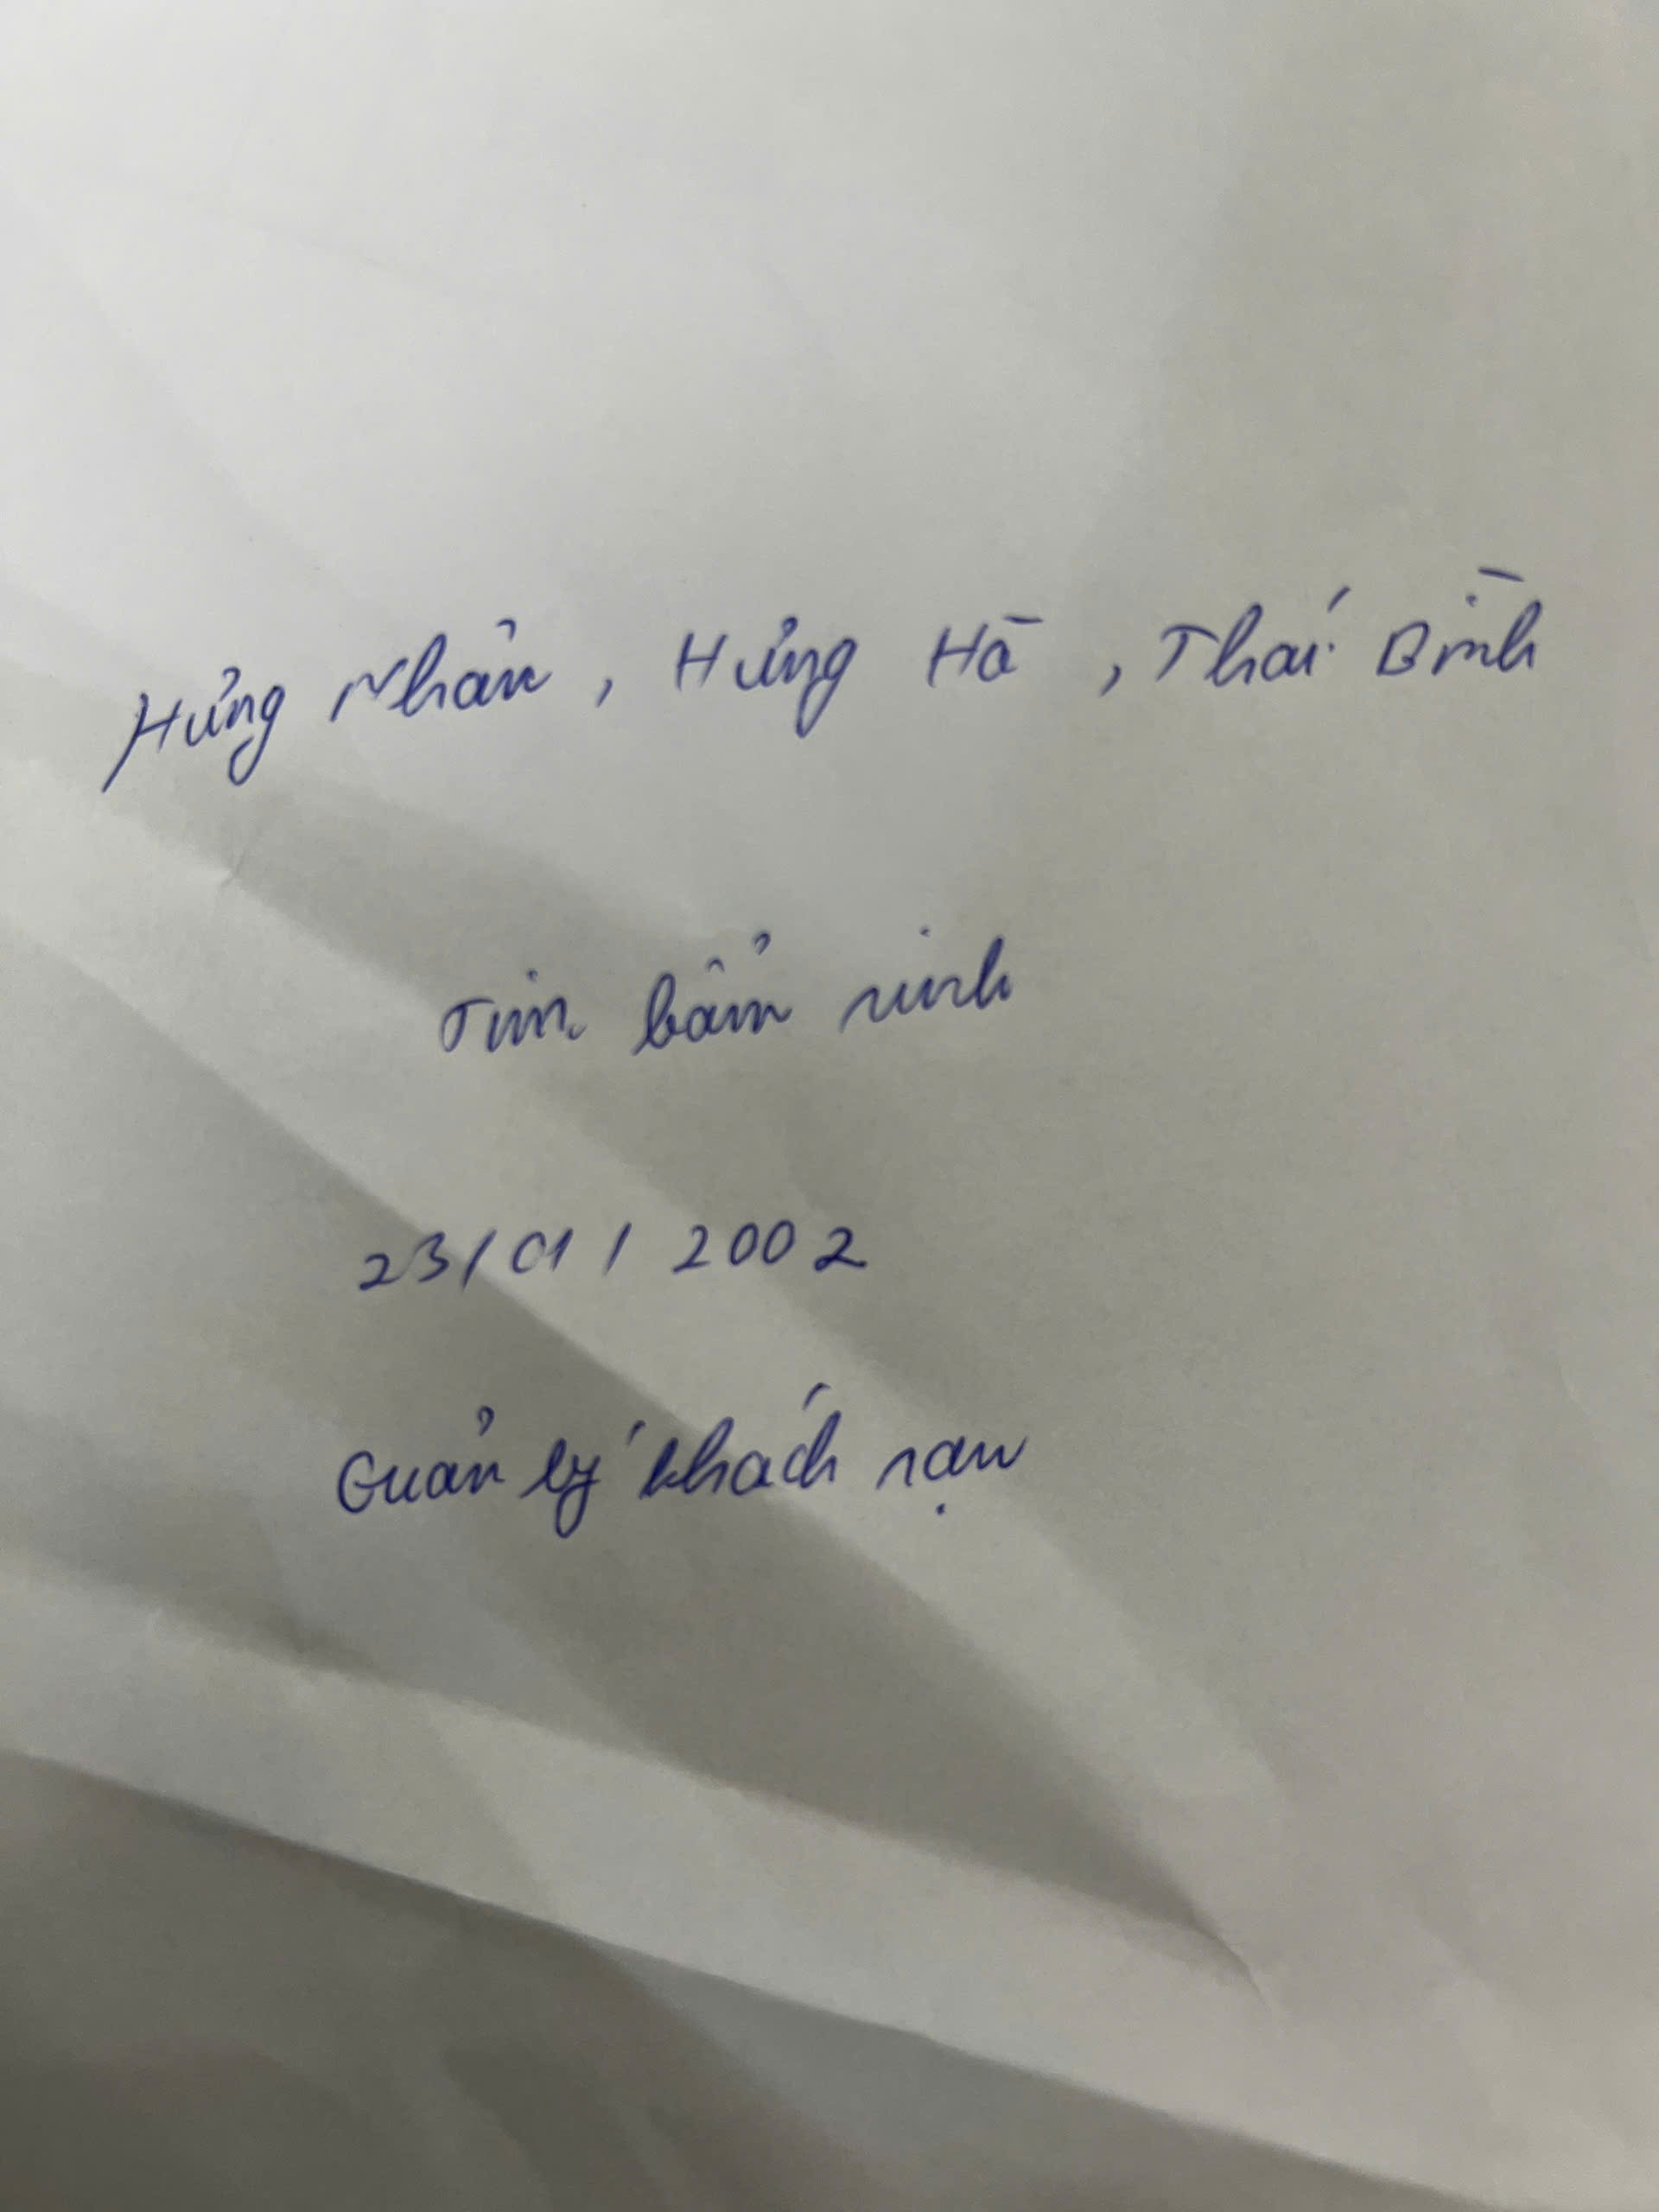 Hưng Nhân, Hưng Hà, Thái Bình
Tim bẩm sinh
23/01/2002
Quản lý khách sạn